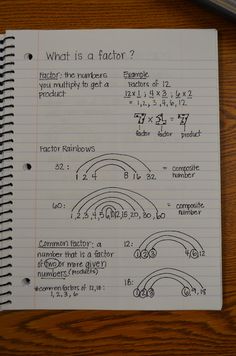 What is a factor?
Factor: the numbers
you multiply to get a
product
Example
Factors of 12
12 x 1 ; 4 x 3 ; 6 x 2
= 1, 2, 3, 4, 6, 12
7 x 1 = 7
factor factor product
Factor Rainbows
32: 1 2 4 8 16 32 = composite
number
60: 1, 2, 3, 4, 5, 6, 10, 12, 15, 20, 30, 60 = composite
number
Common Factor: a
number that is a factor
of two or more given
numbers (products)
*common factors of 12, 18:
1, 2, 3, 6
12: 1 2 3 4 6 12
18: 1 2 3 6, 9, 18